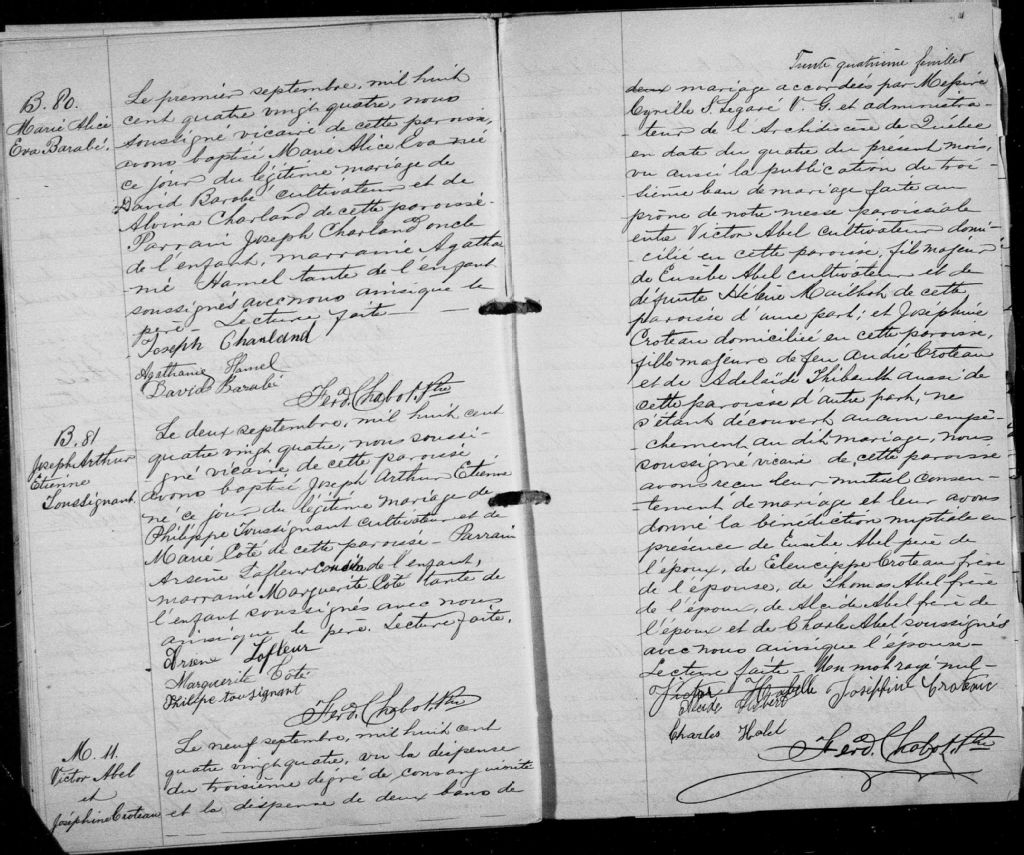 B. 80.
Marie Alice
Eva Barabé.
Le premier septembre, mil huit
cent quatre vingt quatre, nous
soussigné vicaire de cette paroisse,
avons baptisé Marie Alice Eva née
ce jour du légitime mariage de
David Barabé cultivateur et de
Alvina Charland de cette paroisse.
Parrain Joseph Charland oncle
de l'enfant, marraine Agatha
né Hamel tante de l'enfant
soussignés avec nous ainsique le
père - Lecture faite -
Joseph Charland
Agathanie Hamel
David Barabé
Ferd. Chabot. Ptre
B. 81
Joseph Arthur
Etienne
Toussignant
Le deux septembre, mil huit cent
quatre vingt quatre, nous soussi-
gné vicaire de cette paroisse
avons baptisé Joseph Arthur Etiene
né ce jour du légitime mariage de
Philippe Toussignant cultivateur et de
Marie Côté de cette paroisse - Parrain
Arsène Lafleur cousin de l'enfant,
marraine Marguerite Coté tante de
l'enfant soussignés avec nous
ainsique le père. Lecture faite.
Arsene Lafleur
Marguerite Coté
Philippe tousignant
Ferd. Chabot Ptre
M. 11.
Victor Abel
et
Joséphine Croteau
Le neuf septembre, mil huit cent
quatre vingt quatre, vu la dispense
du troisième degré de consanguinité
et la dispense de deux bans de
Trente quatrième feuillet
deux mariage accordées par Messire
Cyrille . Legaré V. G. et administra-
teur de l'Archidiocèse de Québec
en date du quatre du présent mois,
vu aussi la publication du troi-
sième ban de mariage faite au
prône de notre messe paroissiale
entre Victor Abel cultivateur domi-
cilié en cette paroisse, fils majeur
de Eusèbe Abel cultivateur et de
défunte Hélène Mailhot de cette
paroisse d'une part; et Joséphine
Croteau domiciliée en cette paroisse,
fille majeure de feu André Croteau
et de Adelaïde Thibault aussi de
cette paroisse d'autre part, ne
s'étant découvert aucun empê-
chement au dit mariage, nous
soussigné vicaire de cette paroisse
avons reçu leur mutuel consen-
tement de mariage et leur avons
donné la bénédiction nuptiale en
présence de Eusèbe Abel père de
l'époux, de Eleucippe Croteau frère
de l'épouse, de Thomas Abel frère
de l'époux, de Alcide Abel frère de
l'époux et de Charle Abel soussignés
avec nous ainsique l'épouse -
Lecture faite - Un mot rayé nul -
Victor Josephine Croteau
Alcide
Charles Halel
Ferd. Chabot. Ptre